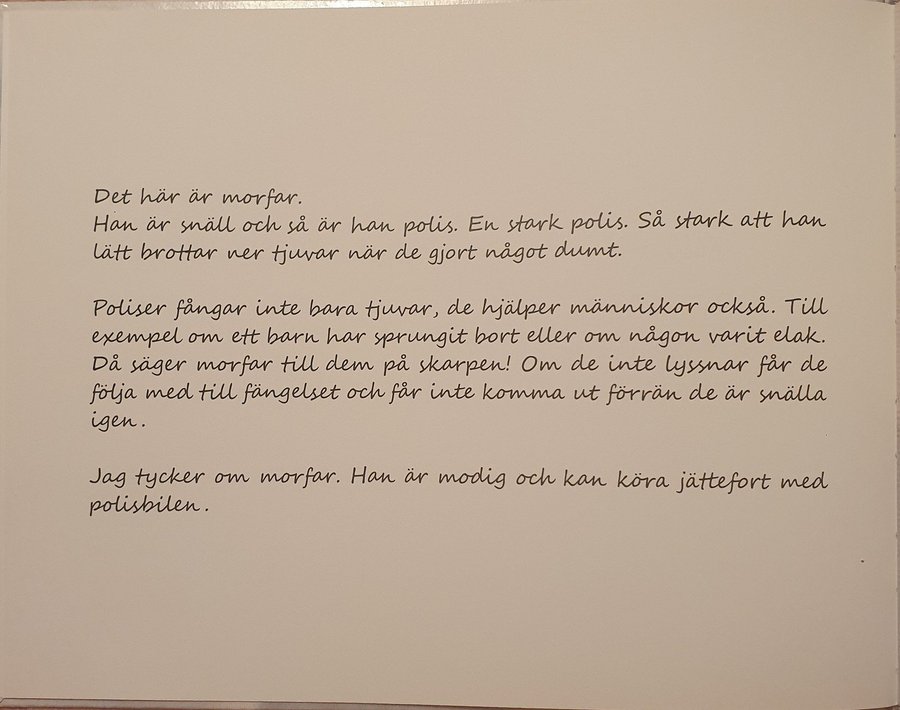 Det här är morfar.
Han är snäll och så är han polis. En stark polis. Så stark att han
lätt brottar ner tjuvar när de gjort något dumt.
Poliser fångar inte bara tjuvar, de hjälper människor också. Till
exempel om ett barn har sprungit bort eller om någon varit elak.
Då säger morfar till dem på skarpen! Om de inte lyssnar får de
följa med till fängelset och får inte komma ut förrän de är snälla
igen.
Jag tycker om morfar. Han är modig och kan köra jättefort med
polisbilen.